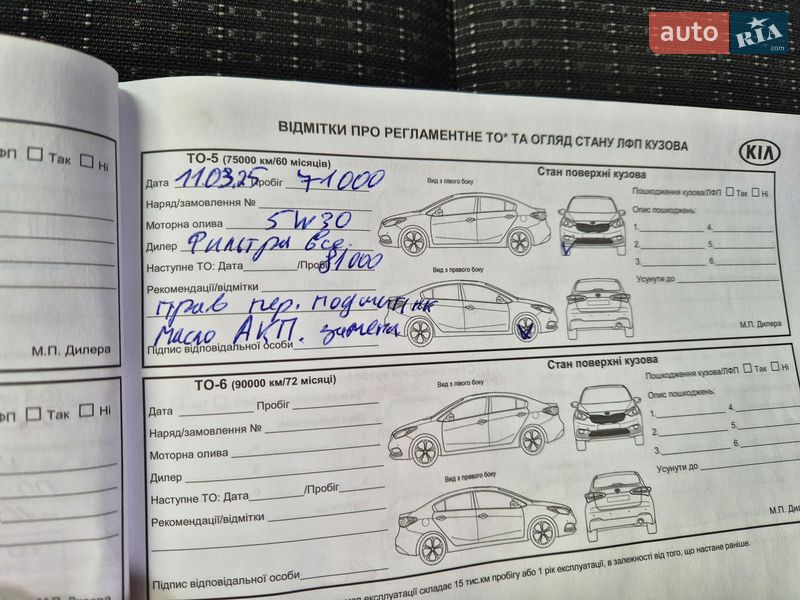 auto RIA
RIA.com
ВІДМІТКИ ПРО РЕГЛАМЕНТНЕ ТО* ТА ОГЛЯД СТАНУ ЛФП КУЗОВА
KIA
ФП Так Ні
ТО-5 (75000 км/60 місяців)
Дата 11.03.25 Пробіг 71000
Наряд/замовлення №
Моторна олива 5W30
Дилер Фильтра все.
Наступне ТО: Дата /Пробіг 81000
Рекомендації/відмітки
прав пер. подшипник
масло АКП. замена
Підпис відповідальної особи
Вид з лівого боку
Вид з правого боку
Стан поверхні кузова
Пошкодження кузова/ЛФП Так Ні
Опис пошкоджень:
1. 4.
2. 5.
3. 6.
Усунути до
М.П. Дилера
М.П. Дилера
ФП Так Ні
ТО-6 (90000 км/72 місяці)
Дата Пробіг
Наряд/замовлення №
Моторна олива
Дилер
Наступне ТО: Дата /Пробіг
Рекомендації/відмітки
Підпис відповідальної особи
Вид з лівого боку
Вид з правого боку
Стан поверхні кузова
Пошкодження кузова/ЛФП Так Ні
Опис пошкоджень:
1. 4.
2. 5.
3. 6.
Усунути до
М.П. Дилера
М.П. Дилера
експлуатації складає 15 тис.км пробігу або 1 рік експлуатації, в залежності від того, що настане раніше.